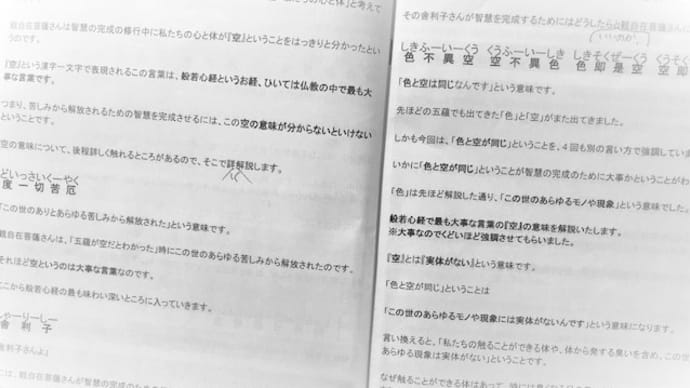 たちの心と体」と考えて
観自在菩薩さんは智慧の完成の修行中に私たちの心と体が『空』ということをはっきりと分かったとい
うのです。
『空』という漢字一文字で表現されるこの言葉は、般若心経というお経、ひいては仏教の中で最も大
事な言葉です。
つまり、苦しみから解放されるための智慧を完成させるには、この空の意味が分からないといけない
ということです。
空の意味について、後程詳しく触れるところがあるので、そこで詳解説します。
どいっさいくーやく
度一切苦厄
「この世のありとあらゆる苦しみから解放された」という意味です。
観自在菩薩さんは、「五蘊が空だとわかった」時にこの世のあらゆる苦しみから解放されたのです。
それほど空というのは大事な言葉なのです。
ここから般若心経の最も味わい深いところに入っていきます。
しゃーりーしー
舎利子
舎利子さんよ」
には、観自在菩薩さんが智慧の完成のための
その舎利子さんが智慧を完成するためにはどうしたらと観自在菩薩
いいのか
しきふーいーくう くうふーいーしき しきそくぜーくう くうそく
色不異空 空不異色 色即是空 空即
「色と空は同じなんです」という意味です。
先ほどの五蘊でも出てきた「色」と「空」がまた出てきました。
しかも今回は、「色と空が同じ」ということを、4回も別の言い方で強調していま
いかに「色と空が同じ」ということが智慧の完成のために大事かということがわ
「色」は先ほど解説した通り、「この世のあらゆるモノや現象」という意味でした。
般若心経で最も大事な言葉の『空』の意味を解説いたします。
※大事なのでくどいほど強調させてもらいました。
『空』とは『実体がない』という意味です。
「色と空が同じ」ということは
「この世のあらゆるモノや現象には実体がないんです」という意味になります。
言い換えると、「私たちの触ることができる体や、体から発する臭いを含め、この
あらゆる現象は実体がない」ということです。
なぜ触ることができる体はあって、